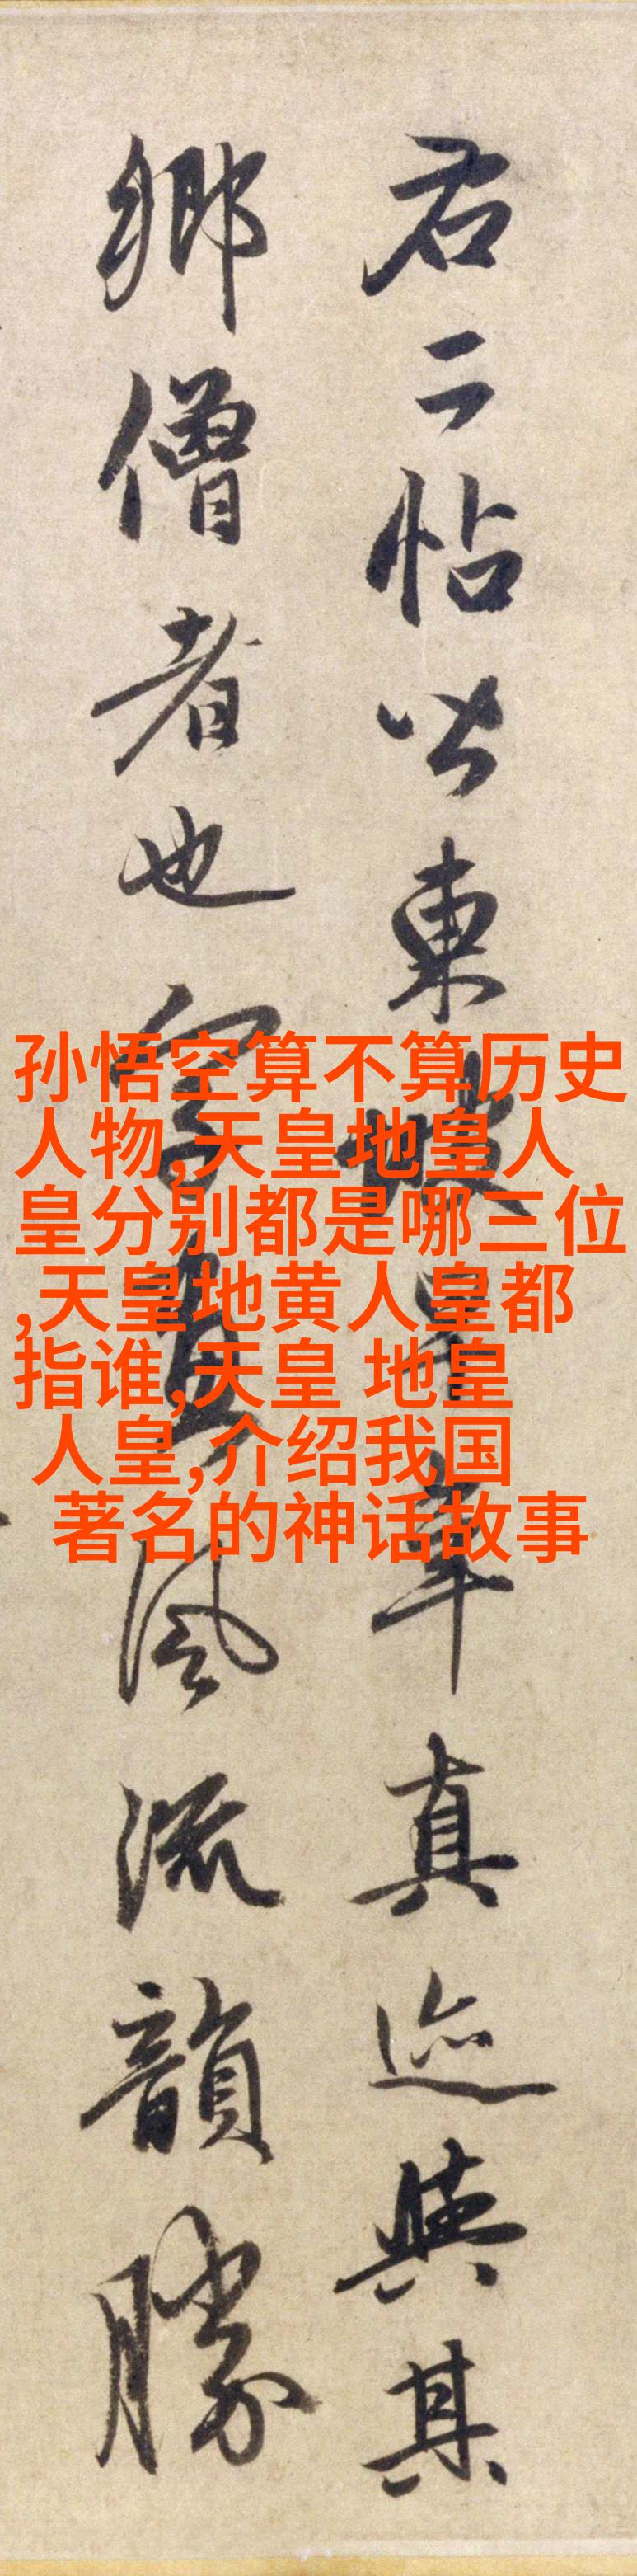 右二帖皆東坡早年真迹與其
鄉僧者也字畫風流韻勝
孙悟空算不算历史
人物,天皇地皇人
皇分别都是哪三位
,天皇地黄人皇都
指谁,天皇 地皇
人皇,介绍我国
著名的神话故事